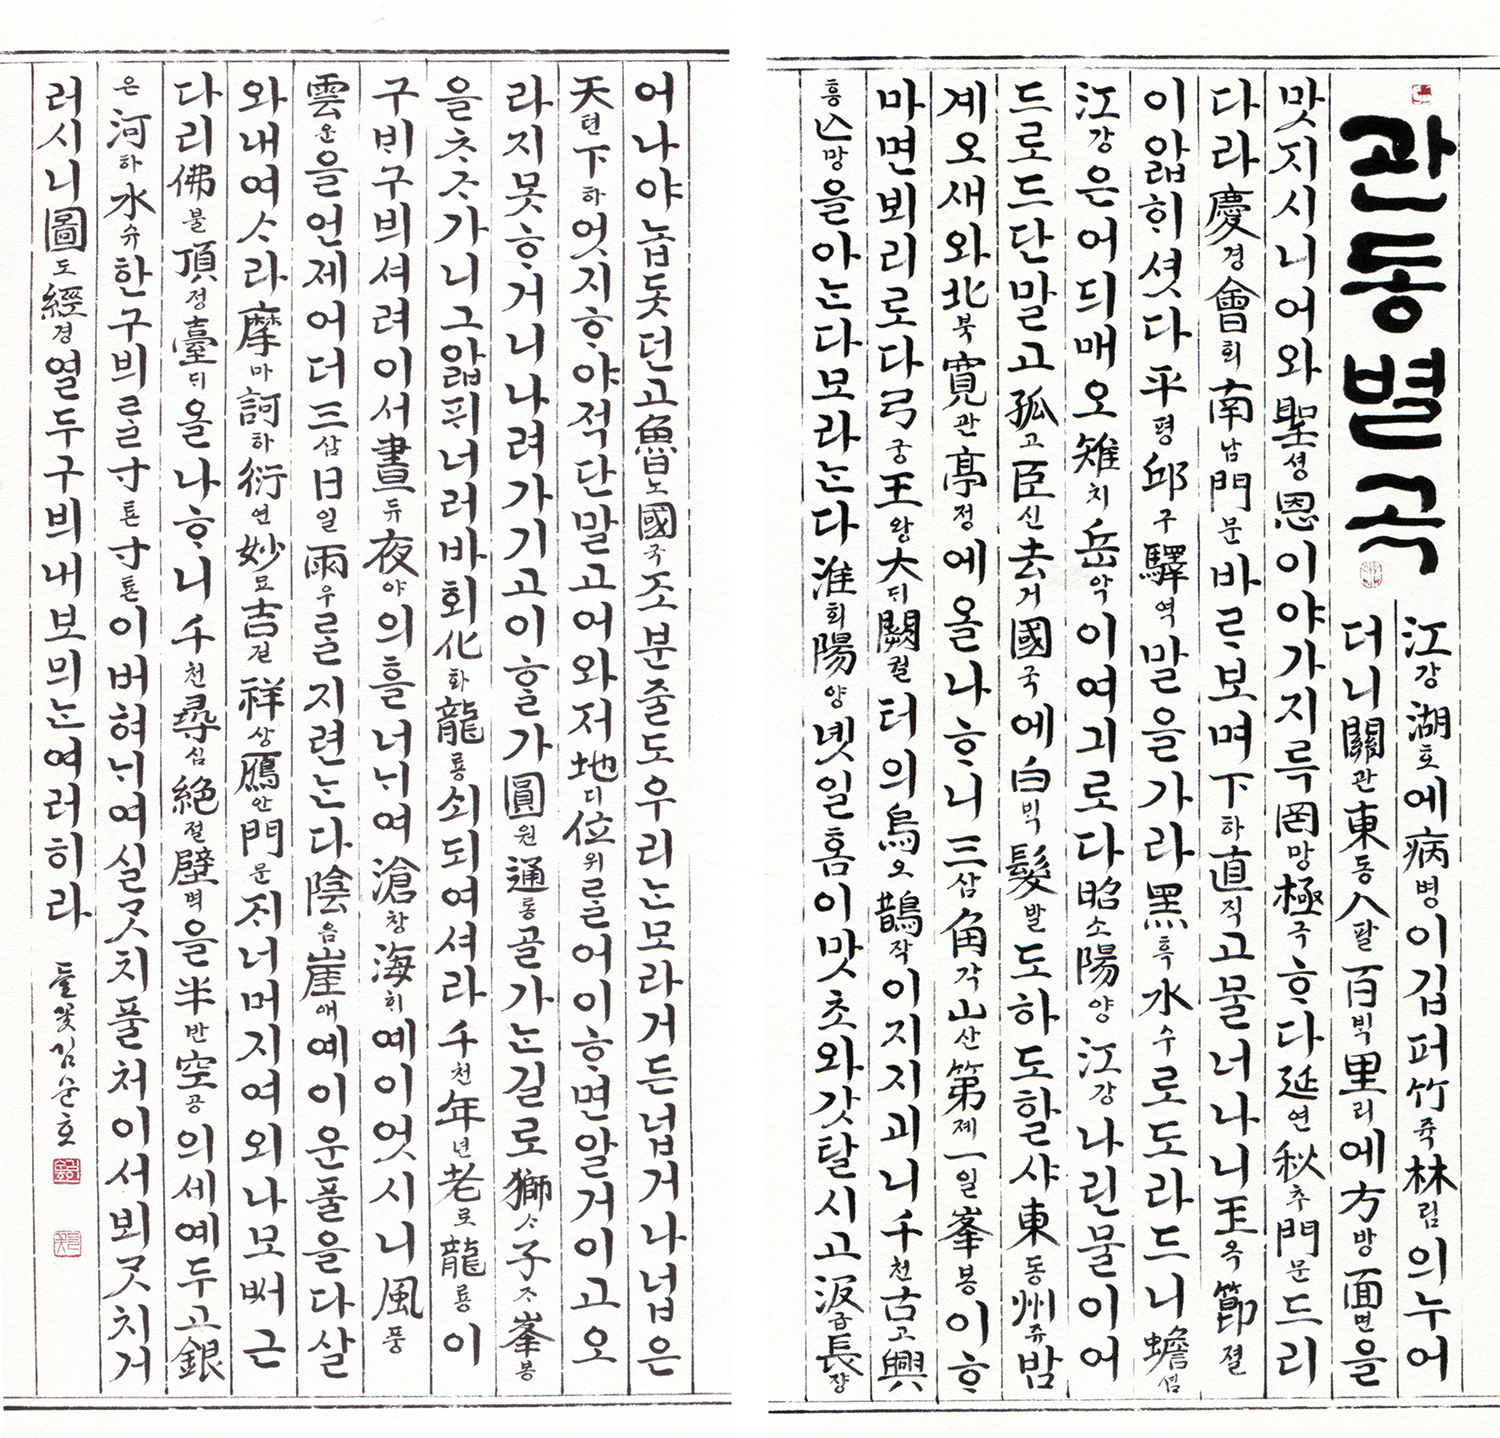 관동별곡
江강湖호에病병이깁퍼竹쥭林림의누어
더니關관東동八팔百ᄇᆡᆨ里리에方방面면을
맛지시니어와聖셩恩이야가지륵罔망極극ᄒᆞ다延연秋추門문드리
다라慶경會회南남門문바ᄅᆞ보며下하直직고물너나니玉옥節졀
이앏ᄒᆡ셧다平평邱구驛역말을가라黑흑水수로도라드니蟾셤
江강은어듸매오雉치岳악이여긔로다昭소陽양江강나린물이어
드로드단말고孤고臣신去거國국에白ᄇᆡᆨ髮발도하도할샤東동州쥬밤
계오새와北북寬관亭정에올나ᄒᆞ니三삼角각山산第제一일峯봉이ᄒᆞ
마면뵈리로다弓궁王왕大ᄃᆡ闕궐터의烏오鵲작이지지괴니千천古고興
흥亡망을아ᄂᆞᆫ다모라ᄂᆞᆫ다淮회陽양녯일홈이맛초와갓탈시고汲급長쟝
어나야놉돗던고魯노國국조분줄도우리ᄂᆞᆫ모라거든넙거나넙은
天텬下하엇지ᄒᆞ야적단말고어와저地디位위ᄅᆞᆯ어이ᄒᆞ면알거이고오
라지못ᄒᆞ거니나려가기고이ᄒᆞᆯ가圓원通통골가ᄂᆞᆫ길로獅ᄉᆞ子ᄌᆞ峯봉
을ᄎᆞᄌᆞ가니그앏ᄑᆡ너러바회化화龍룡쇠되여셔라千천年년老로龍룡이
구ᄇᆡ구븨셔려이서晝듀夜야의흘너ᄂᆡ여滄창海ᄒᆡ예이엇시니風풍
雲운을언제어더三삼日일雨우ᄅᆞᆯ지련ᄂᆞᆫ다陰음崖애예이운풀을다살
와내여ᄉᆞ라摩마訶하衍연妙묘吉길祥상雁안門문ᄌᆡ너머지여외나모뻐근
다리佛불頂정臺ᄃᆡ올나ᄒᆞ니千천尋심絶절壁벽을半반空공의세예두고銀
은河하水슈한구븨ᄅᆞᆯ寸촌寸촌이버혀ᄂᆡ여실ᄀᆞᆺ치풀쳐이서뵈ᄀᆞᆺ치거
러시니圖도經경열두구븨내보믜ᄂᆞᆫ여러히라
들꽃김순호